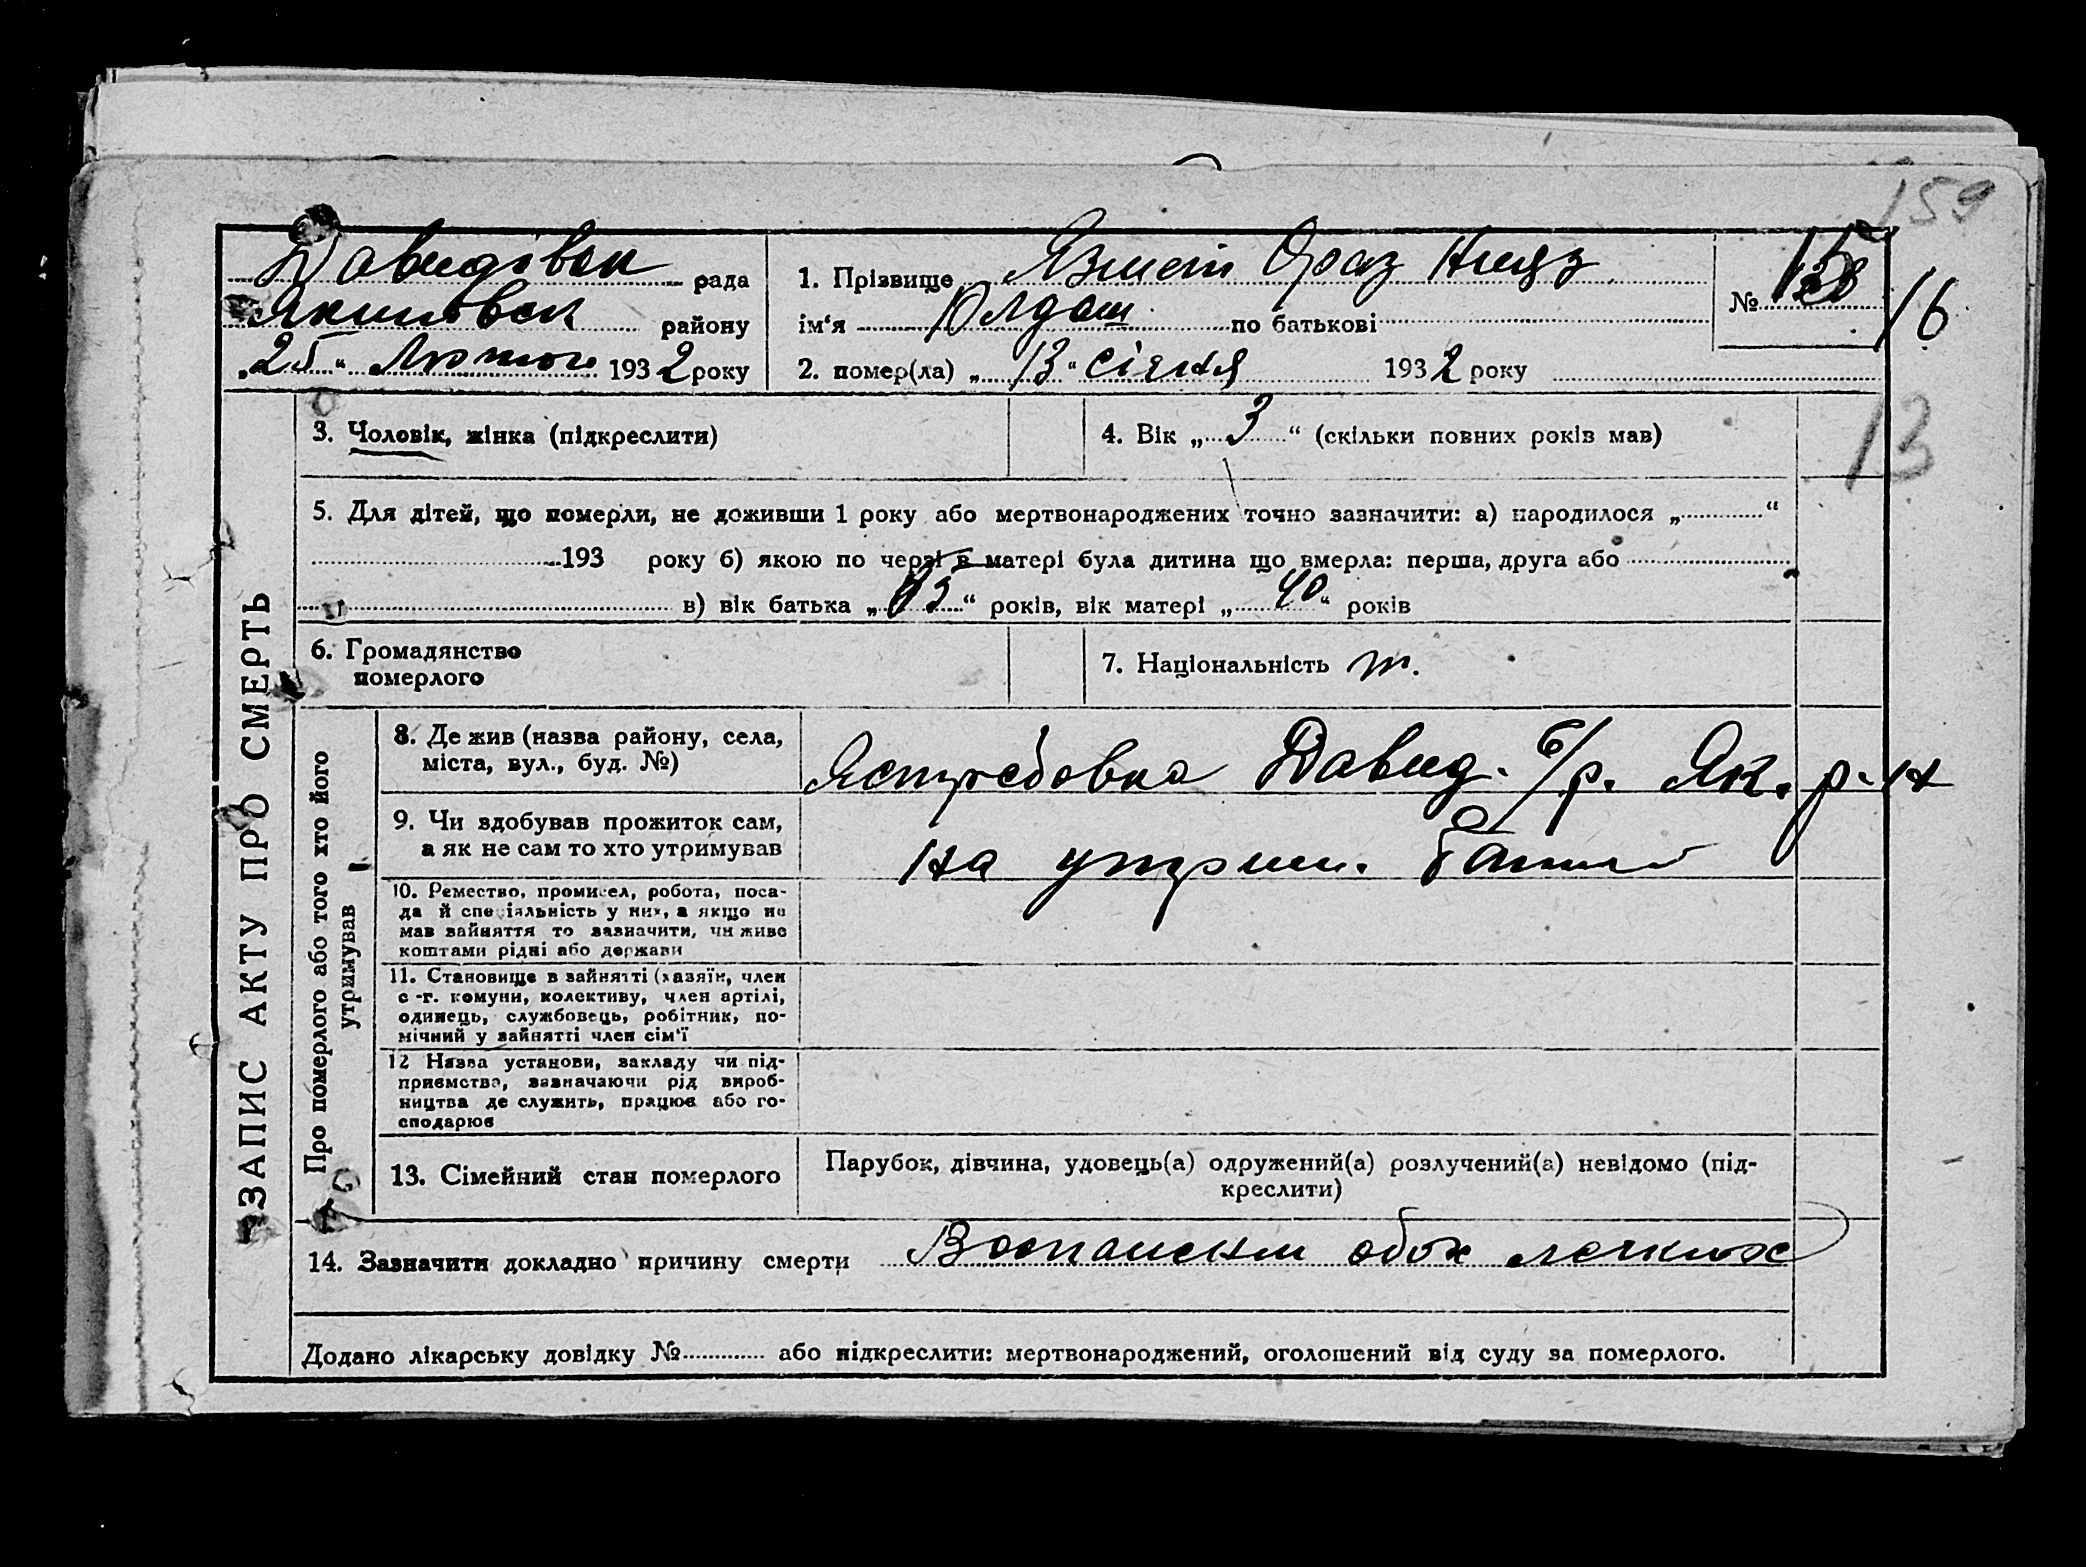 159
Давидівск рада
Якимовск району
„25“ Лютого 1932 року
1. Прізвище Ораз Нияз
ім'я Юлдаш по батькові
2. помер(ла) „13“ січня 1932 року
№ 15
128
16
13
ЗАПИС АКТУ ПРО СМЕРТЬ
3. Чоловік, жінка (підкреслити)
4. Вік „3“ (скільки повних років мав)
5. Для дітей, що померли, не доживши 1 року або мертвонароджених точно зазначити: а) народилося „ “
193 року б) якою по черзі в матері була дитина що вмерла: перша, друга або
в) вік батька „ “ років, вік матері „40“ років
6. Громадянство
померлого
7. Національність т.
Про померлого або того хто його
утримував
8. Де жив (назва району, села,
міста, вул., буд. №)
Ястребовка Давид. с/р. Як. р-н
9. Чи здобував прожиток сам,
а як не сам то хто утримував
на утрим. батька
10. Ремество, промисел, робота, поса-
да й спеціяльність у них, а якщо не
мав зайняття то зазначити, чи живе
коштами рідні або держави
11. Становище в зайнятті (хазяїн, член
с-г. комуни, колективу, член артілі,
одинець, службовець, робітник, по-
мічний у зайнятті член сім'ї
12 Назва установи, закладу чи під-
приємства, зазначаючи рід вироб-
ництва де служить, працює або го-
сподарює
13. Сімейний стан померлого
Парубок, дівчина, удовець(а) одружений(а) розлучений(а) невідомо (під-
креслити)
14. Зазначити докладно причину смерти обох легких
Додано лікарську довідку № або підкреслити: мертвонароджений, оголошений від суду за померлого.